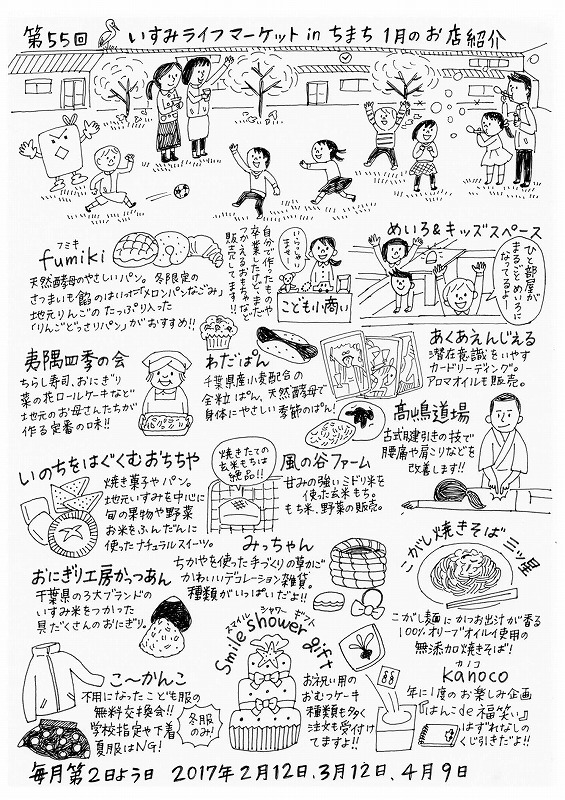 第55回 いすみライフマーケット in ちまち 1月のお店紹介
フミキ
fumiki
天然酵母のやさしいパン。冬限定の
さつまいも餡のはいった「メロンパンなごみ」
地元りんごのたっぷり入った
「りんごどっさりパン」がおすすめ!!
自分で作ったものや
卒業したけど、まだ
つかえるおもちゃなど
販売してます!!
いらっしゃい
ませー!
こども小商い
めいろ&キッズスペース
ひと部屋が
まるごとめいろに
なってるよ!
夷隅四季の会
ちらし寿司、おにぎり
菜の花ロールケーキなど
地元のお母さんたちが
作る定番の味!!
わだぱん
千葉県産小麦配合の
全粒ぱん、天然酵母で
身体にやさしい季節のぱん!
あくあえんじぇる
潜在意識をいやす
カードリーディング。
アロマオイルも販売。
高嶋道場
古式腱引きの技で
腰痛や肩こりなどを
改善します!!
いのちをはぐくむおちちや
焼き菓子やパン。
地元いすみを中心に
旬の果物や野菜
お米をふんだんに
使ったナチュラルスイーツ。
焼きたての
玄米もちは
絶品!!
風の谷ファーム
甘みの強いミドリ米を
使った玄米もち。
もち米、野菜の販売。
みっちゃん
ちがやを使った手づくりの草かご
かわいいデコレーション雑貨。
種類がいっぱいだよ!!
こがし焼きそば 三ツ星
こがし麺にかつお出汁が香る
100%オリーブオイル使用の
無添加焼きそば!
おにぎり工房かっつあん
千葉県の3大ブランドの
いすみ米をつかった
具だくさんのおにぎり。
スマイル シャワー ギフト
Smile shower gift
お祝い用の
おむつケーキ
種類も多く
注文も受付け
てますよ!!
こ〜かんこ
不用になったこども服の
無料交換会!!
学校指定や下着
夏服はNG!
冬服
のみ!
カノコ
kanoco
年に1度のお楽しみ企画
『はんこde福笑い』
はずれなしの
くじ引きだよ!!
毎月第2日よう日 2017年2月12日、3月12日、4月9日